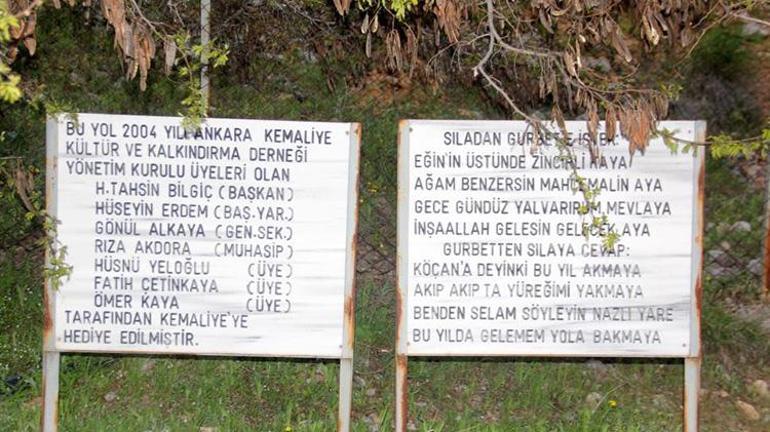 BU YOL 2004 YILI ANKARA KEMALİYE
KÜLTÜR VE KALKINDIRMA DERNEĞİ
YÖNETİM KURULU ÜYELERİ OLAN
H.TAHSİN BİLGİÇ (BAŞKAN)
HÜSEYİN ERDEM (BAŞ.YAR.)
GÖNÜL ALKAYA (GEN.SEK.)
RIZA AKDORA (MUHASİP)
HÜSNÜ YELOĞLU (ÜYE)
FATİH ÇETİNKAYA (ÜYE)
ÖMER KAYA (ÜYE)
TARAFINDAN KEMALİYE'YE
HEDİYE EDİLMİŞTİR.
SILADAN GURBETE İSTEK:
EĞİN'İN ÜSTÜNDE ZİNCİRLİ KAYA
AĞAM BENZERSİN MAHÇEMALİN AYA
GECE GÜNDÜZ YALVARIRIM MEVLAYA
İNŞAALLAH GELESİN GELECEK AYA
GURBETTEN SILAYA CEVAP:
KÖÇAN'A DEYİNKİ BU YIL AKMAYA
AKIP AKIP TA YÜREĞİMİ YAKMAYA
BENDEN SELAM SÖYLEYİN NAZLI YARE
BU YILDA GELEMEM YOLA BAKMAYA